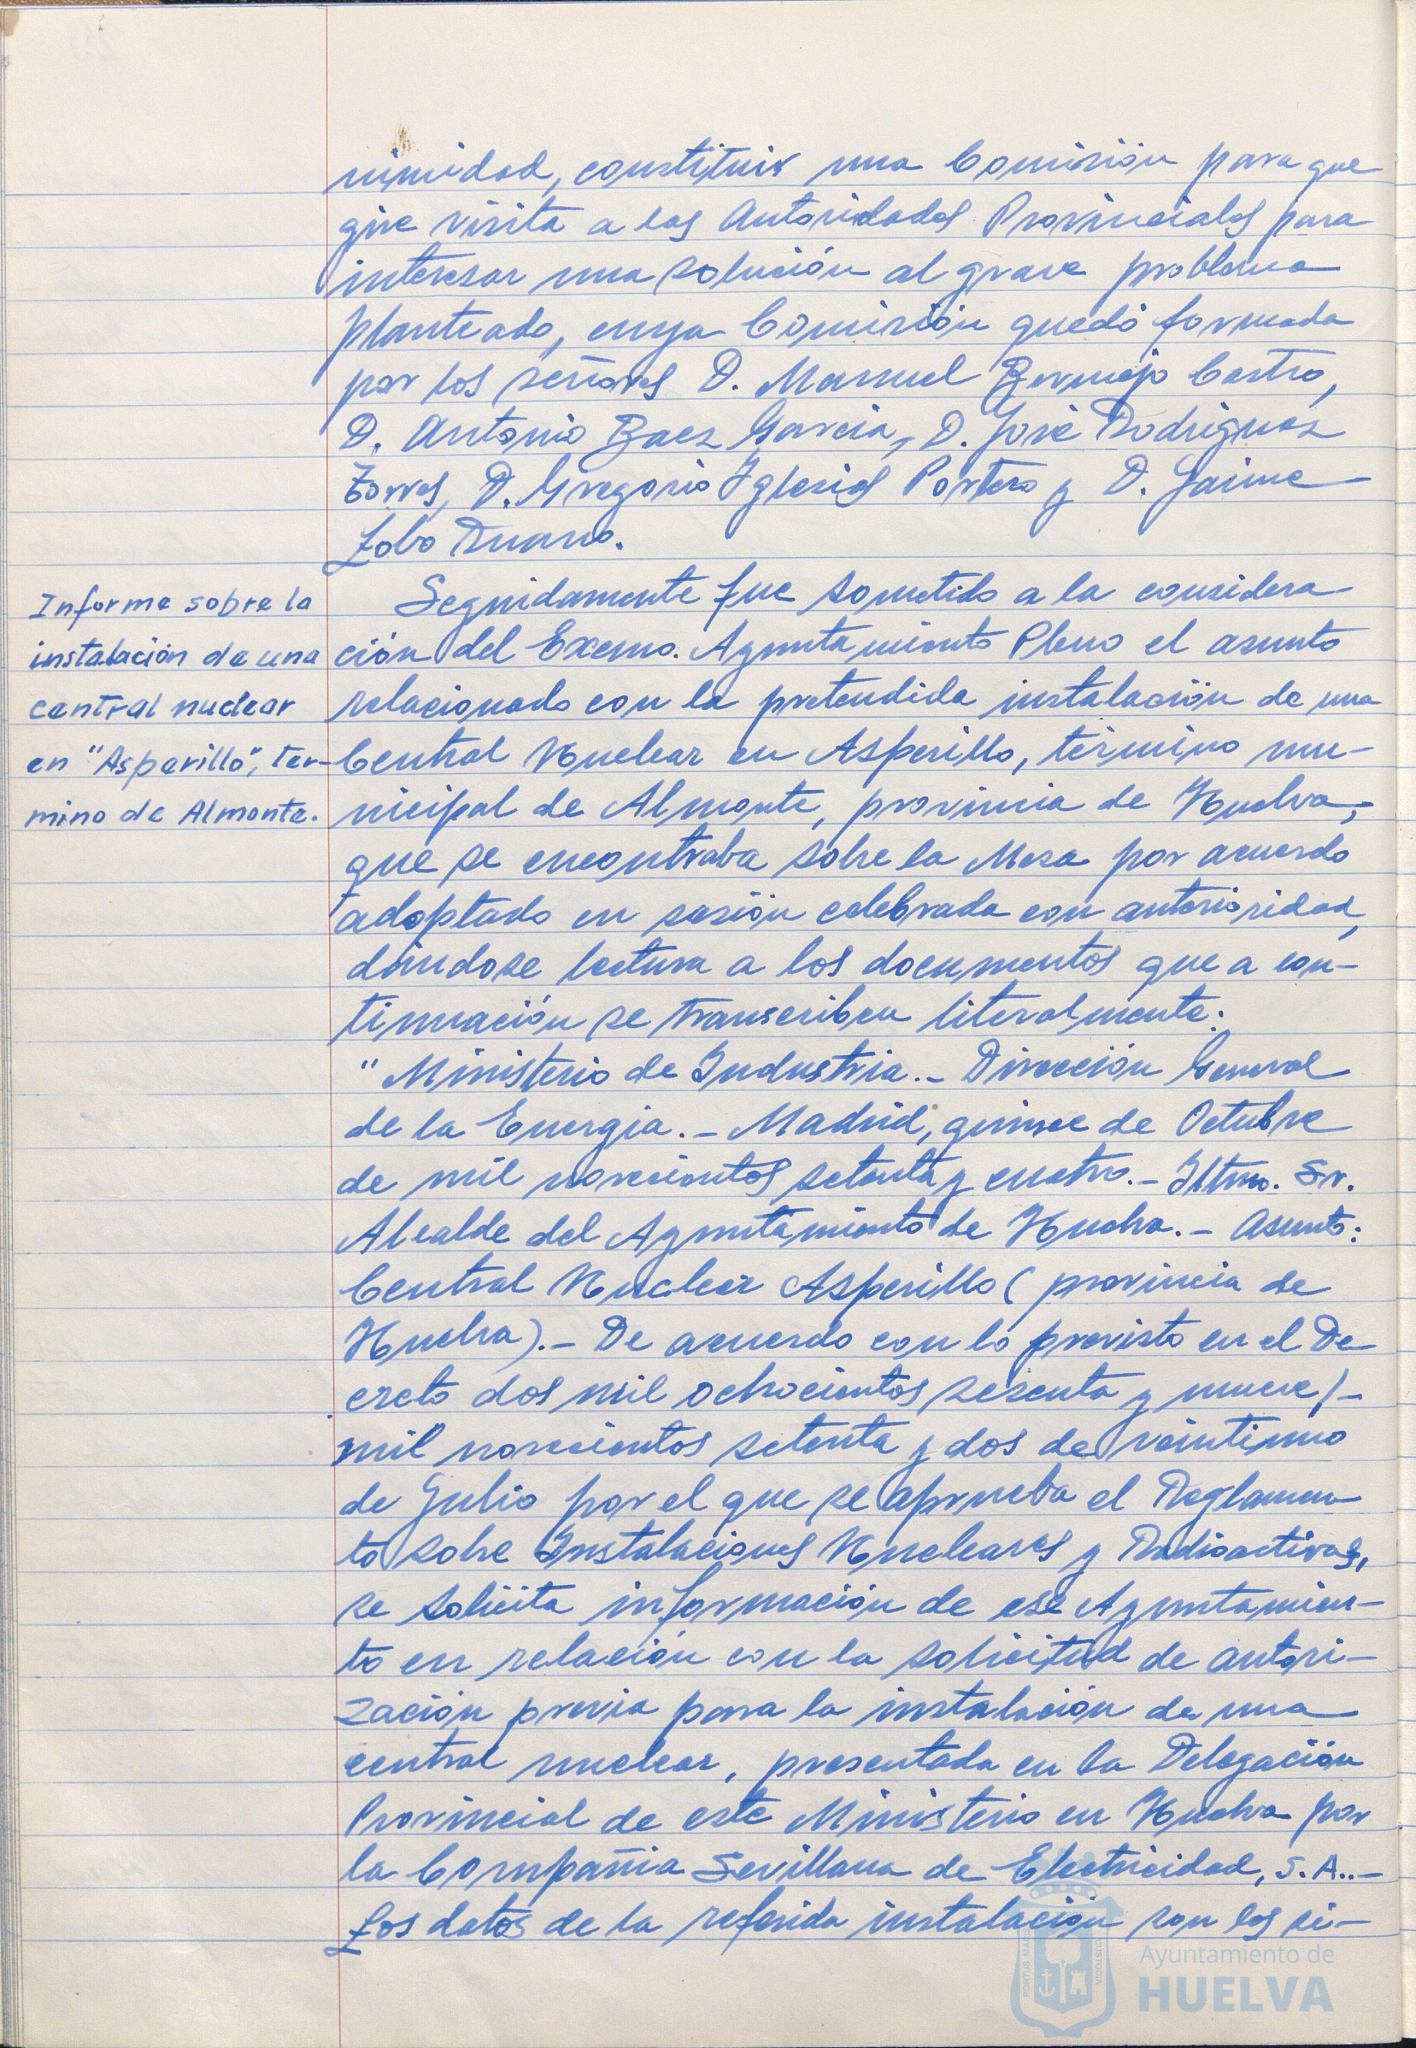 nimidad, constituir una Comisión para que
gire visita a las Autoridades Provinciales para
interesar una solución al grave problema
planteado, cuya Comisión quedó formada
por los señores D. Manuel Bermejo Castro,
D. Antonio Baez García, D. José Rodríguez
Torres, D. Gregorio Iglesias Portero y D. Jaime
Lobo Duano.
Informe sobre la
instalación de una
central nuclear
en "Asperillo", tér-
mino de Almonte.
Seguidamente fue sometido a la considera-
ción del Excmo. Ayuntamiento Pleno el asunto
relacionado con la pretendida instalación de una
Central Nuclear en Asperillo, término mu-
nicipal de Almonte, provincia de Huelva,
que se encontraba sobre la Mesa por acuerdo
adoptado en sesión celebrada con anterioridad,
dándose lectura a los documentos que a con-
tinuación se transcriben literalmente:
"Ministerio de Industria.- Dirección General
de la Energía.- Madrid, quince de Octubre
de mil novecientos setenta y cuatro.- Iltmo. Sr.
Alcalde del Ayuntamiento de Huelva.- Asunto:
Central Nuclear Asperillo (provincia de
Huelva).- De acuerdo con lo previsto en el De-
creto dos mil ochocientos sesenta y nueve/-
mil novecientos setenta y dos de veintiuno
de Julio por el que se aprueba el Reglamen-
to sobre Instalaciones Nucleares y Radioactivas,
se solicita información de ese Ayuntamien-
to en relación con la solicitud de autori-
zación previa para la instalación de una
central nuclear, presentada en la Delegación
Provincial de este Ministerio en Huelva por
la Compañia Sevillana de Electricidad, S.A..-
Los datos de la referida instalación son los si-
PORTUS MARIS
CUSTODIA
Ayuntamiento de
HUELVA